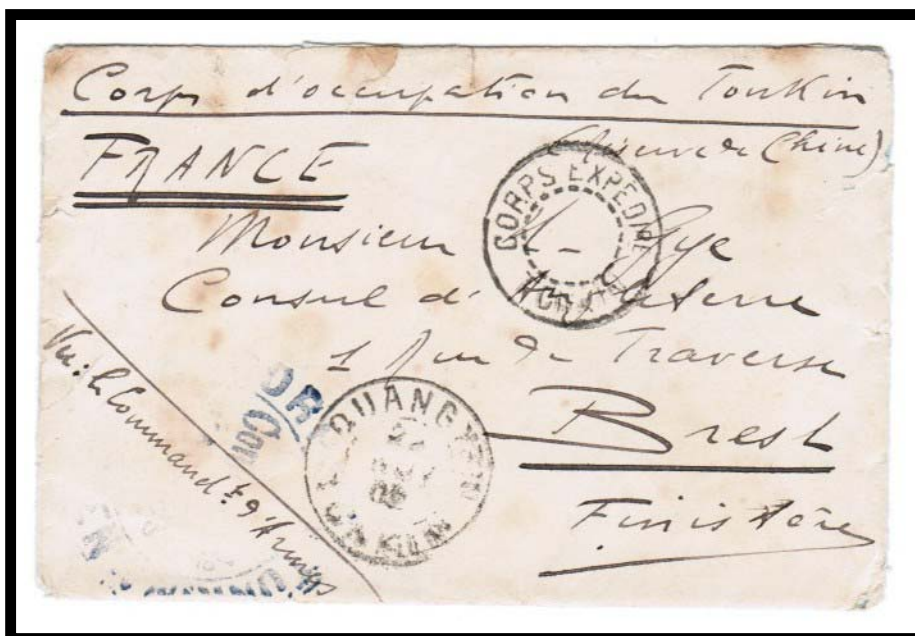 Corps d'occupation du Tonkin
(Guerre de Chine)
FRANCE
CORPS EXPEDRE
TONKIN
Monsieur
Consul d'Angleterre
1 Rue de Traverse
Brest
Finistère
Vu: le Command.t d'Armes
QUANG YEN
TONKIN